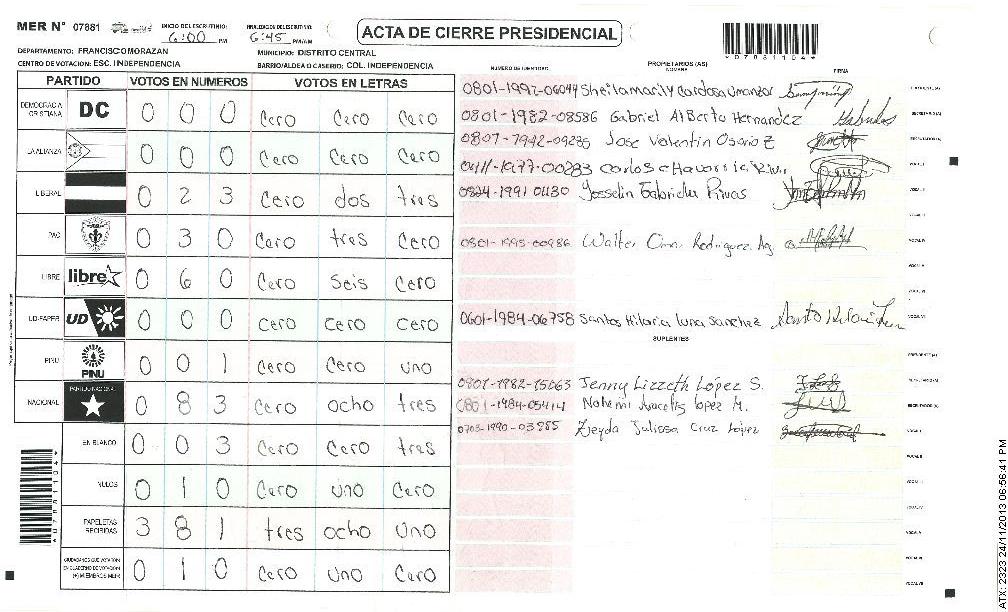 MER N° 07881
INICIO DEL ESCRUTINIO: 6:00 PM
FINALIZACION DEL ESCRUTINIO: 6:45 PM/AM
ACTA DE CIERRE PRESIDENCIAL
*07881104*
DEPARTAMENTO: FRANCISCO MORAZAN
MUNICIPIO: DISTRITO CENTRAL
CENTRO DE VOTACION: ESC. INDEPENDENCIA
BARRIO/ALDEA O CASERIO: COL. INDEPENDENCIA
PARTIDO VOTOS EN NUMEROS VOTOS EN LETRAS
DEMOCRACIA CRISTIANA DC 0 0 0 Cero Cero Cero
LA ALIANZA 0 0 0 Cero Cero Cero
LIBERAL 0 2 3 Cero dos tres
PAC 0 3 0 Cero tres Cero
LIBRE libre 0 6 0 Cero Seis Cero
UD-FAPER UD 0 0 0 Cero Cero Cero
PINU PINU 0 0 1 Cero Cero uno
NACIONAL PARTIDO NACIONAL 0 8 3 Cero ocho tres
EN BLANCO 0 0 3 Cero Cero tres
NULOS 0 1 0 Cero uno Cero
PAPELETAS RECIBIDAS 3 8 1 tres ocho uno
CIUDADANOS QUE VOTARON EN CUADERNO DE VOTACION (+) MIEMBROS MER 0 1 0 Cero uno Cero
*07881104*
NUMERO DE IDENTIDAD PROPIETARIOS (AS) NOMBRE FIRMA
0801-1992-06044 Sheilamarily Cardosa Umanzor
0801-1982-08586 Gabriel AlBerto Hernandez
Jose Valentin Osorio Z
0411-1977-00283 Carlos
0824-1991 01130 Josselin Gabriela Rivas
0801-1995-00986 Walter Rodriguez
0601-1984-06758 Santos Hilaria luna Sanchez
SUPLENTES
0801-1982-15063 Jenny Lizzeth López S.
0801-1984-05414 Nohemi Aracelis lopez M.
0703-1990-03285 Zleyda Julissa Cruz López
ATX: 2323 24/11/2013 06:56:41 PM